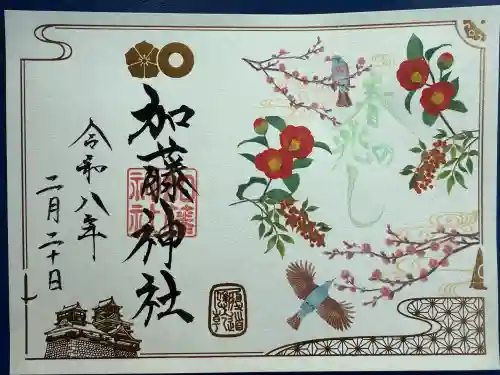 加藤神社
令和八年
二月二十日
加藤
神社